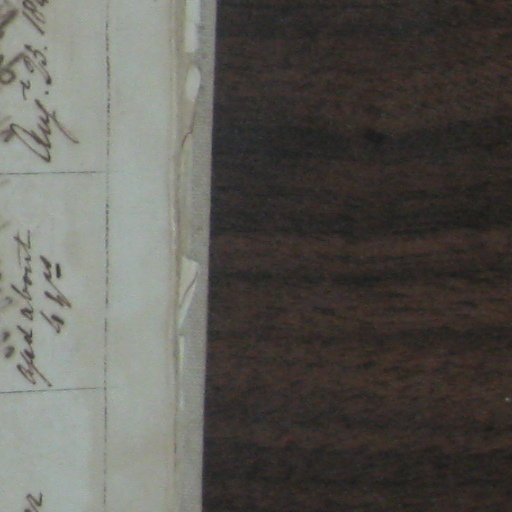 aged about
4 yrs
Augt. 23. 18